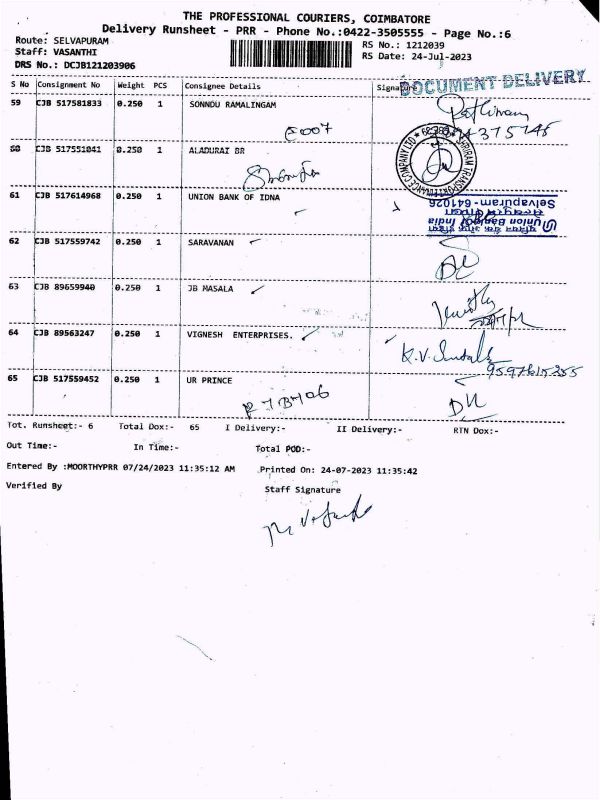 THE PROFESSIONAL COURIERS, COIMBATORE
Delivery Runsheet - PRR - Phone No.:0422-3505555 - Page No.:6
Route: SELVAPURAM
Staff: VASANTHI
DRS No.: DCJB121203906
RS No.: 1212039
RS Date: 24-Jul-2023
S No Consignment No Weight PCS Consignee Details Signature
DOCUMENT DELIVERY
59 CJB 517581833 0.250 1 SONNDU RAMALINGAM
60 CJB 517551041 0.250 1 ALADURAI BR
61 CJB 517614968 0.250 1 UNION BANK OF IDNA
Union Bank of India
Selvapuram - 641026
62 CJB 517559742 0.250 1 SARAVANAN
63 CJB 89659940 0.250 1 JB MASALA
64 CJB 89563247 0.250 1 VIGNESH ENTERPRISES.
65 CJB 517559452 0.250 1 UR PRINCE
Tot. Runsheet:- 6 Total Dox:- 65 I Delivery:- II Delivery:- RTN Dox:-
Out Time:- In Time:- Total POD:-
Entered By :MOORTHYPRR 07/24/2023 11:35:12 AM Printed On: 24-07-2023 11:35:42
Verified By Staff Signature